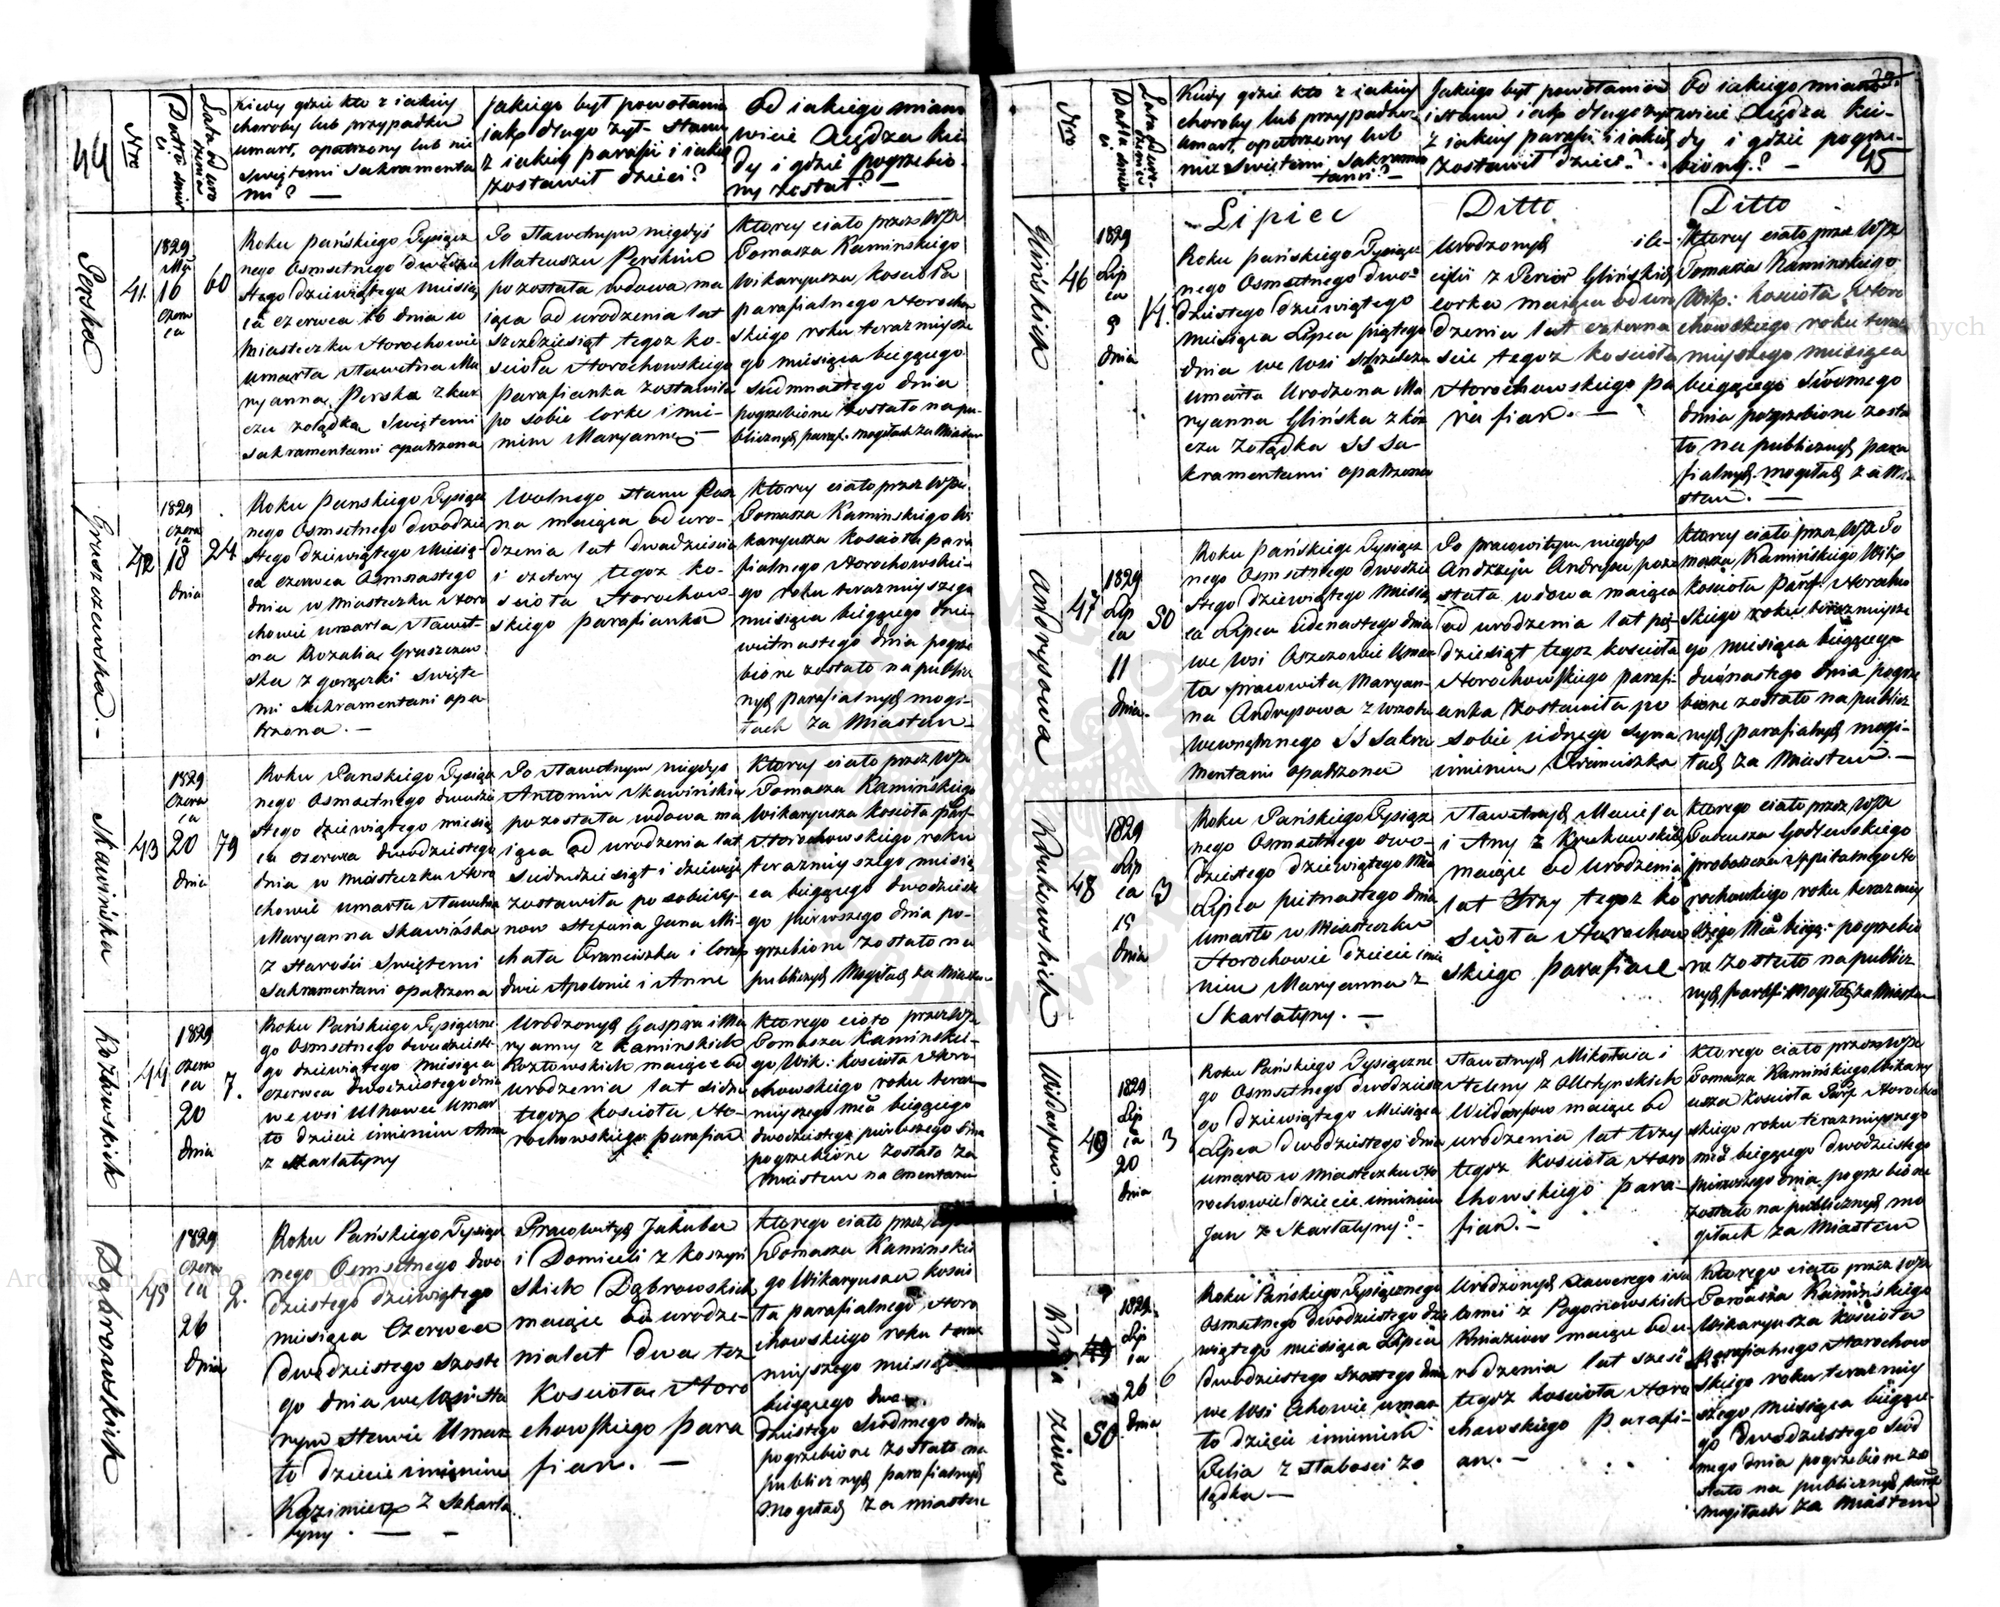 44
Nro
Datta dnia
Lata od uro
dzenia
Kiedy gdzie kto z iakiey
choroby lub przypadku
umarł, opatrzony lub nie
Swiętemi Sakramenta
mi? —
Jakiego był powołania
iak długo żył – stanu
z iakiey parafii i iakie
zostawił dzieci?
Od iakiego miano
wicie Xiędza kie
dy i gdzie pogrzebio-
ny został? —
Perska
41.
1829
16
Czerw
ca
60
Roku Pańskiego Tysiącz
nego Osmsetnego dwudzie
stego dziewiątego miesią
ca Czerwca 16 dnia w
Miasteczku Horochowie
umarła Sławetna Ma
ryanna Perska z kur
czu żołądka Swiętemi
Sakramentami opatrzona
Po Sławetnym niegdyś
Mateuszu Perskim
pozostała wdowa ma
iąca od urodzenia lat
sześćdziesiąt tegoż ko-
ścioła Horochowskiego
parafianka zostawiła
po sobie Corkę imie-
niem Maryannę. —
Ktorey ciało przez WJX
Tomasza Kaminskiego
Wikaryusza kościoła
parafialnego Horocho
skiego roku teraznieysze
go miesiąca bieżącego
siedmnastego dnia
pogrzebione zostało na pu-
blicznych paraf. mogiłach za Miastem
Gruszczewska. —
42
1829
Czerw
ca
18
dnia
24
Roku Panskiego Tysiącz
nego Osmsetnego dwudzie
stego dziewiątego Miesią-
ca Czerwca Osmnastego
dnia w Miasteczku Horo
chowie umarła Sławet-
na Rozalia Gruszczew
ska z gorączki Swięte-
mi Sakramentami opa
trzona. —
Wolnego stanu Pan
na maiąca od uro-
dzenia lat dwadzieścia
i cztery tegoż ko-
ścioła Horochow-
skiego parafianka
Ktorey ciało przez WJX
Tomasza Kaminskiego Wi
karyusza Kościoła para
fialnego Horochowskie-
go roku teraznieyszego
miesiąca bieżącego dzie
więtnastego dnia pogrze
bione zostało na publicz
nych parafialnych mogi-
łach za Miastem –
Skawińska
43
1829
Czerw
ca
20
dnia
79
Roku Panskiego Tysiącz
nego Osmsetnego dwudzie
stego dziewiątego miesią
ca Czerwca dwudziestego
dnia w Miasteczku Horo
chowie umarła Sławetna
Maryanna Skawińska
z starości Swiętemi
Sakramentami opatrzona
Po Sławetnym niegdys
Antonim Skawińskim
pozostała wdowa ma
iąca od urodzenia lat
siedmdziesiąt i dziewięć
zostawiła po sobie sy-
now Stefana Jana Mi-
chała Franciszka i Corek
dwie Apolonię i Annę
Ktorey ciało przez WJX
Tomasza Kamińskiego
Wikaryusza kościoła paraf
Horochowskiego roku
teraznieyszego miesią
ca bieżącego dwudzieste
go pierwszego dnia po-
grzebione zostało na
publicznych Mogiłach za Miastem
Kozłowskich
44
1829
Czerw
ca
20
dnia
7.
Roku Pańskiego Tysiączne
go Osmsetnego dwudzieste
go dziewiątego miesiąca
Czerwca dwudziestego dnia
we wsi Uhowcu umar
ło dziecie imieniem Anna
z Skarlatyny
Urodzonych Gaspra i Ma
ryanny z Kaminskich
Kozłowskich maiące od
urodzenia lat siedm
tegoż kościoła Ho-
rochowskiego parafian
Ktorego ciało przez WJX
Tomasza Kaminskie-
go Wik: kościoła Horo-
chowskiego roku teraz-
nieyszego mca bieżącego
dwudziestego pierwszego dnia
pogrzebione zostało za
Miastem na Cmentarzu
Dąbrowskich
45
1829
Czerw
ca
26
dnia
2.
Roku Pańskiego Tysiącz
nego Osmsetnego dwu
dziestego dziewiątego
miesiąca Czerwca
dwudziestego szoste
go dnia we wsi Sta
rym Stawie umar
ło dziecie imieniem
Kazimierz z Szkarla
tyny. — –
Pracowitych Jakuba
i Domiceli z Koszyń
skich Dąbrowskich
maiące od urodze-
nia lat dwa też
Kościoła Horo
chowskiego para
fian. —
Ktorego ciało przez WJX
Tomasza Kaminskie
go Wikaryusza Kościo
ła parafialnego Horo
chowskiego roku teraz
nieyszego miesiąca
bieżącego dwu
dziestego siodmego dnia
pogrzebione zostało na
publicznych parafialnych
mogiłach za miastem
45
Nro
Datta dnia
Kiedy gdzie kto z iakiey
choroby lub przypadku
umarł, opatrzony lub
nie Swiętemi Sakramen
tami? –
Jakiego był powołania
i stanu i iak długo żył
z iakiey parafii i iakie
zostawił dzieci? .
Od iakiego miano
wicie Xiędza kie-
dy i gdzie pogrze-
biony? —
Lipiec
Ditto
Ditto
Glińskich
46
1829
Lip
ca
9
dnia
14.
Roku Pańskiego Tysiącz
nego Osmsetnego dwu-
dziestego dziewiątego
miesiąca Lipca piątego
dnia we wsi
umarła Urodzona Ma
ryanna Glińska z kur
czu żołądka SS Sa-
kramentami opatrzona
Urodzonych
Glińskich
corka maiąca od uro
dzenia lat czterna
scie tegoż kościoła
Horochowskiego pa
rafian. —
Ktorey ciało przez WJX
Tomasza Kaminskiego
Wik: kościoła Horo
chowskiego roku teraz
nieyszego miesiąca
bieżącego siodmego
dnia pogrzebione zosta
ło na publicznych para
fialnych mogiłach za Mia-
stem. —
Andrysowa
47
1829
Lip
ca
11
dnia.
50
Roku Pańskiego Tysiącz
nego Osmsetnego dwudzie
stego dziewiątego miesią
ca Lipca iedenastego dnia
we wsi Oszczowie umar
ła pracowita Maryan-
na Andrysowa z wrzodu
wewnętrznego SS Sakra
mentami opatrzona
Po pracowitym niegdys
Andrzeju Andrysu pozo
stała wdowa maiąca
od urodzenia lat pię
dziesiąt tegoż kościoła
Horochowskiego parafi-
anka zostawiła po
sobie iednego syna
imieniem Franciszka
Ktorey ciało przez WJX To
masza Kamińskiego Wik
kościoła Paraf. Horochow
skiego roku teraznieysze
go miesiąca bieżącego
dwónastego dnia pogrze
bione zostało na publicz
nych parafialnych mogi-
łach za Miastem. —
Krukowskich
48
1829
Lip
ca
15
dnia
3
Roku Pańskiego Tysiącz
nego Osmsetnego dwu-
dziestego dziewiątego Mca
Lipca pietnastego dnia
umarło w Miasteczku
Horochowie dziecie imie
niem Maryanna z
Skarlatyny. —
Sławetnych Macieja
i Anny z Krukowskich
maiące od urodzenia
lat trzy tegoż ko
ścioła Horochow
skiego parafian –
Ktorego ciało przez WJX
Tadeusza Godlewskiego
proboszcza Szpitalnego Ho
rochowskiego roku terazniey
szego Mca bieżą: pogrzebio
ne zostało na publicz
nych paraf. Mogiłach za Miastem
Wildarfow. —
49
1829
Lip
ca
20
dnia
3
Roku Pańskiego Tysiączne
go Osmsetnego dwudzieste
go dziewiątego Miesiąca
Lipca dwudziestego dnia
umarło w Miasteczku Ho
rochowie dziecie imieniem
Jan z Skarlatyny? –
Sławetnych Mikołaia i
Heleny z Ołłożynskich
Wildarfow maiące od
urodzenia lat trzy
tegoż Kościoła Horo
chowskiego para-
fian. –
Ktorego ciało przez WJX
Tomasza Kamińskiego Wikary
usza kościoła Paraf. Horochow
skiego roku teraznieyszego
mca bieżącego dwudziestego
pierwszego dnia pogrzebione
zostało na publicznych mo
giłach za Miastem
50
1829.
Lip
ca
26
dnia
6
Roku Pańskiego Tysiącznego
Osmsetnego dwudziestego dzie
wiątego miesiąca Lipca
dwudziestego szostego dnia
we wsi umar
ło dziecie imieniem
Felia z słabości żo
łądka —
Urodzonych Xawerego i
z Pogonowskich
Kniaziow maiące od u-
rodzenia lat sześć
tegoż kościoła Horo
chowskiego parafi-
an. –
Ktorego ciało przez WJX
Tomasza Kamińskiego
Wikaryusza kościoła
Parafialnego Horochow
skiego roku terazniey
szego miesiąca bieżące-
go dwudziestego siod
mego dnia pogrzebione zo
stało na publicznych paraf
mogiłach za Miastem